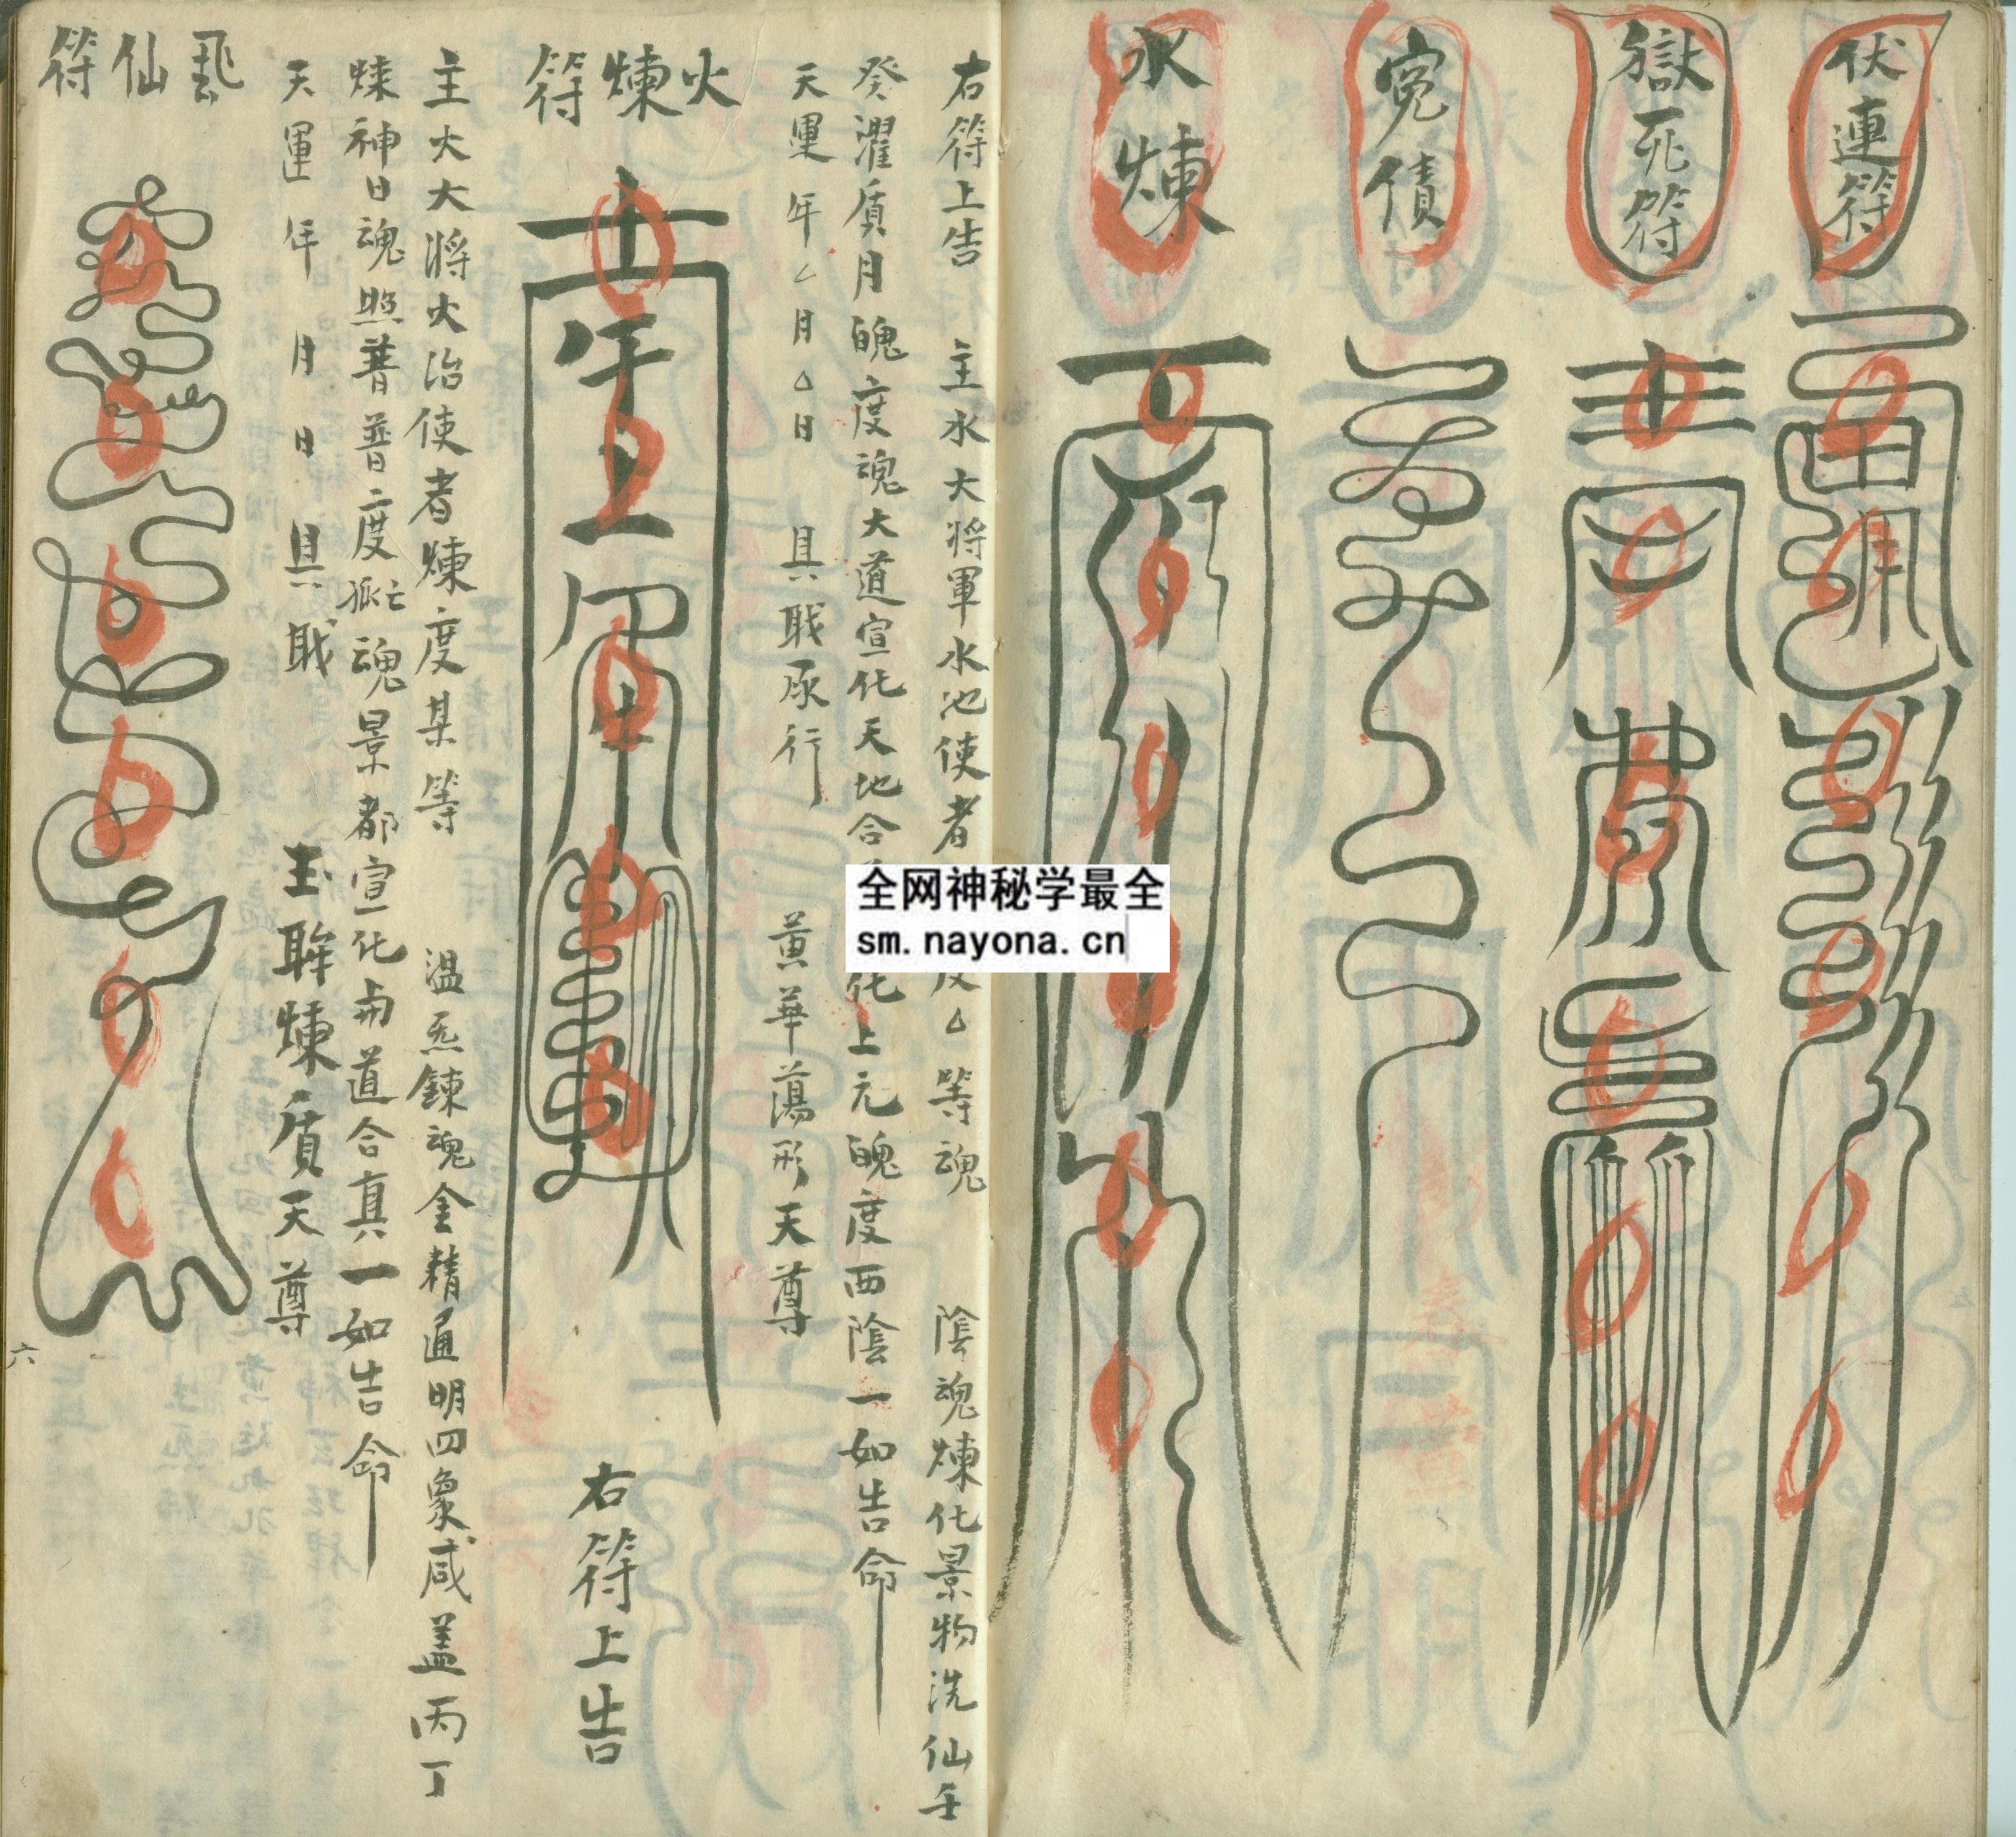 伏連符
獄死符
冤債
水煉
右符上告 主水大將軍水池使者 度△等魂 陰魂煉化景物洗仙壬
癸濯質月魄度魂大道宣化天地合 化上元魄度西陰一如告命
天運年△月△日 具職承行 黄華蕩形天尊
火煉符
右符上告
主火大將火治使者煉度某等 温炁鍊魂金精通明四象咸盖丙丁
煉神日魂照普普度孤魂景都宣化与道合真一如告命
天運年月日 具職 玉眸煉質天尊
仙符
六
全网神秘学最全
sm.nayona.cn